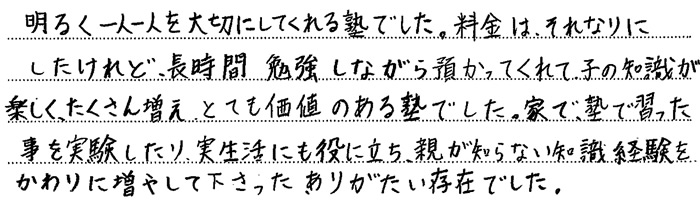 明るく一人一人を大切にしてくれる塾でした。料金は、それなりに
したけれど、長時間 勉強しながら預かってくれて、子の知識が
楽しく、たくさん増え、とても価値のある塾でした。家で、塾で習った
事を実験したり、実生活にも役に立ち、親が知らない知識経験を
かわりに増やして下さった ありがたい存在でした。